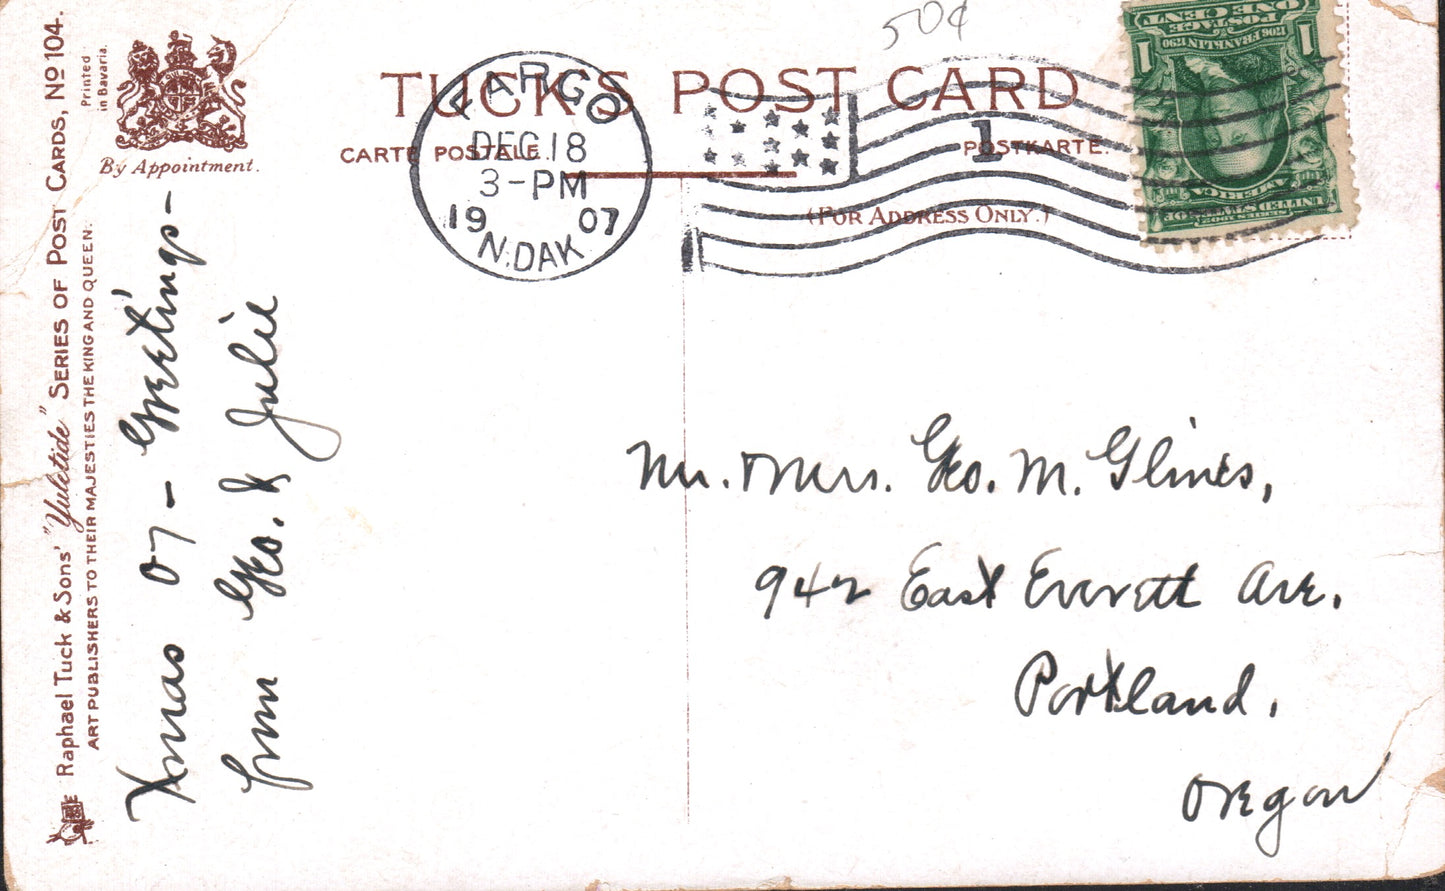 50¢
TUCK'S POST CARD
CARTE POSTALE.
POSTKARTE.
(FOR ADDRESS ONLY.)
FARGO
DEC 18
3-PM
1907
N.DAK
1
ONE CENT
POSTAGE
1706 FRANKLIN 1790
1 1
SERIES 1902
UNITED STATES OF
AMERICA
Printed
in Bavaria.
By Appointment.
Raphael Tuck & Sons' "Yuletide" SERIES OF POST CARDS, No 104.
ART PUBLISHERS TO THEIR MAJESTIES THE KING AND QUEEN.
Xmas 07 - Greetings -
from Geo. & Julie
Mr. & Mrs. Geo. M. Glines,
942 East Everett Ave.
Portland.
Oregon